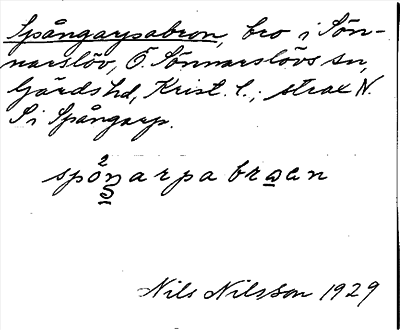 Spångarpsabron, bro i Sön-
narslöv, Ö. Sönnarslövs sn,
Gärds hd, Krist. l.; strax N.
S i Spångarp.
spo²ŋarpabraen
Nils Nilsson 1929